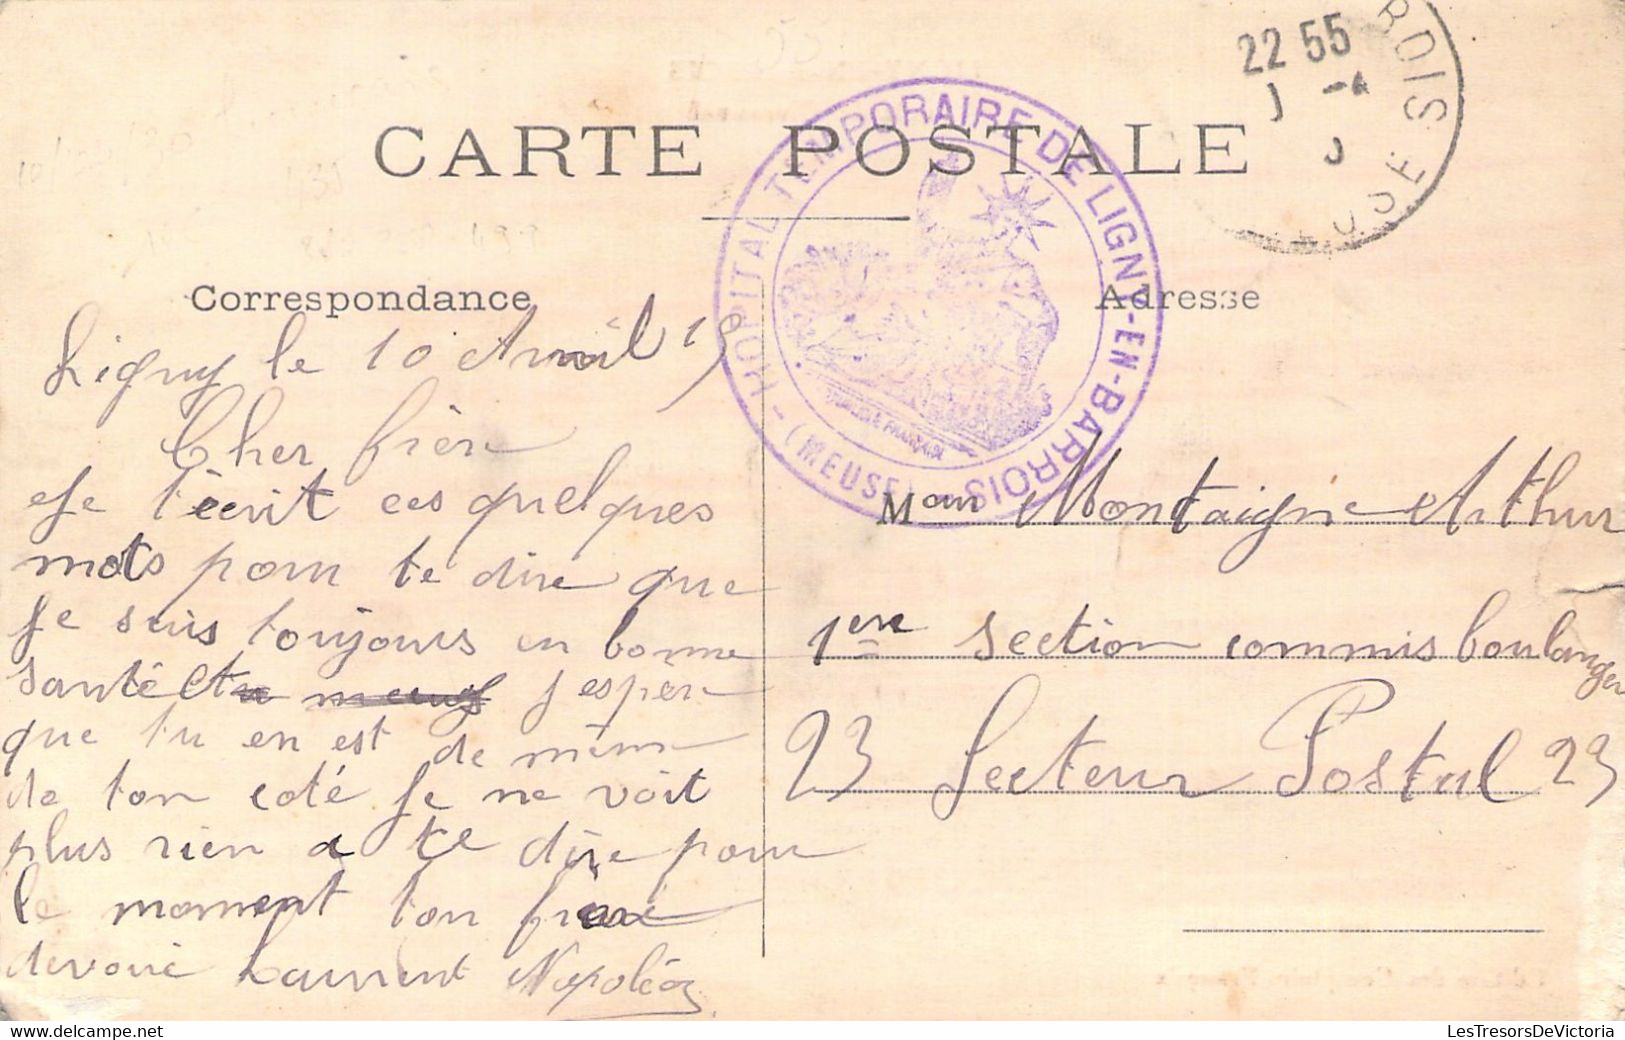 22 55
CARTE POSTALE
HOPITAL TEMPORAIRE DE LIGNY-EN-BARROIS
- (MEUSE) -
Correspondance
Adresse
Ligny le 10 Avril 15
Cher frère
Je t'écrit ces quelques
mots pour te dire que
Je suis toujours en bonne
santé et j'esper
que tu en est de mème
de ton coté Je ne voit
plus rien a te dire pour
le moment ton frère
devoué Laurent Napoléon
Mon Montaigne Arthur
1ere section commis boulanger
23 Secteur Postal 23
LesTresorsDeVictoria.com